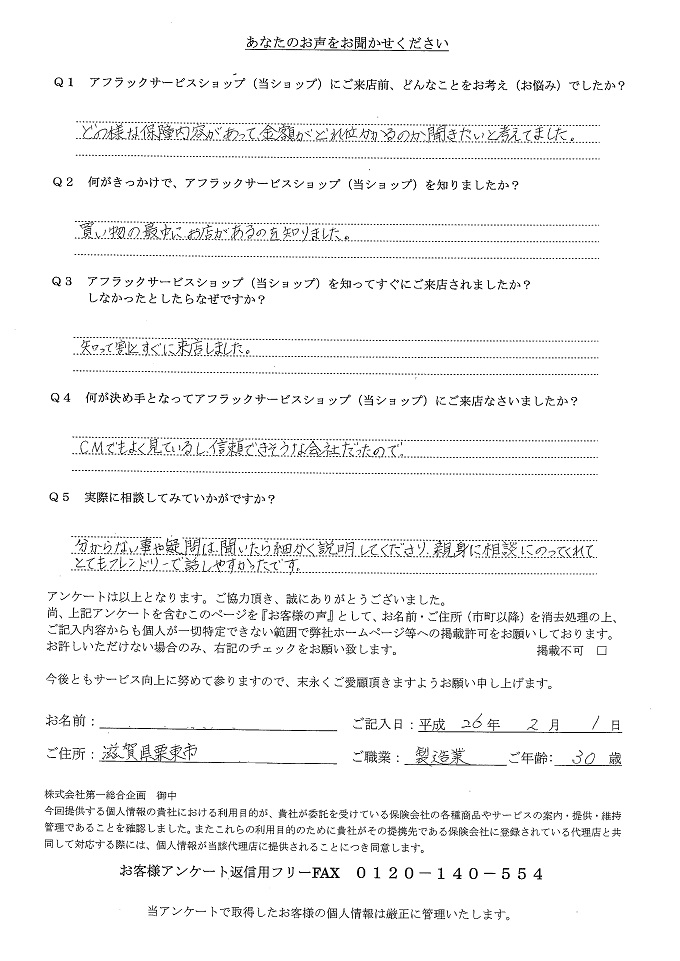 あなたのお声をお聞かせください
Q1 アフラックサービスショップ（当ショップ）にご来店前、どんなことをお考え（お悩み）でしたか？
どの様な保障内容があって金額がどれ位かかるのか聞きたいと考えてました。
Q2 何がきっかけで、アフラックサービスショップ（当ショップ）を知りましたか？
買い物の最中にお店があるのを知りました。
Q3 アフラックサービスショップ（当ショップ）を知ってすぐにご来店されましたか？
しなかったとしたらなぜですか？
知って割とすぐに来店しました。
Q4 何が決め手となってアフラックサービスショップ（当ショップ）にご来店なさいましたか？
CMでもよく見ているし、信頼できそうな会社だったので。
Q5 実際に相談してみていかがですか？
分からない事や疑問は、聞いたら細かく説明してくださり、親身に相談にのってくれて
とてもフレンドリーで話しやすかったです。
アンケートは以上となります。ご協力頂き、誠にありがとうございました。
尚、上記アンケートを含むこのページを『お客様の声』として、お名前・ご住所（市町以降）を消去処理の上、
ご記入内容からも個人が一切特定できない範囲で弊社ホームページ等への掲載許可をお願いしております。
お許しいただけない場合のみ、右記のチェックをお願い致します。 掲載不可 □
今後ともサービス向上に努めて参りますので、末永くご愛顧頂きますようお願い申し上げます。
お名前： ご記入日：平成 26年 2月 1日
ご住所：滋賀県栗東市 ご職業：製造業 ご年齢：30歳
株式会社第一総合企画 御中
今回提供する個人情報の貴社における利用目的が、貴社が委託を受けている保険会社の各種商品やサービスの案内・提供・維持
管理であることを確認しました。またこれらの利用目的のために貴社がその提携先である保険会社に登録されている代理店と共
同して対応する際には、個人情報が当該代理店に提供されることにつき同意します。
お客様アンケート返信用フリーFAX 0120－140－554
当アンケートで取得したお客様の個人情報は厳正に管理いたします。